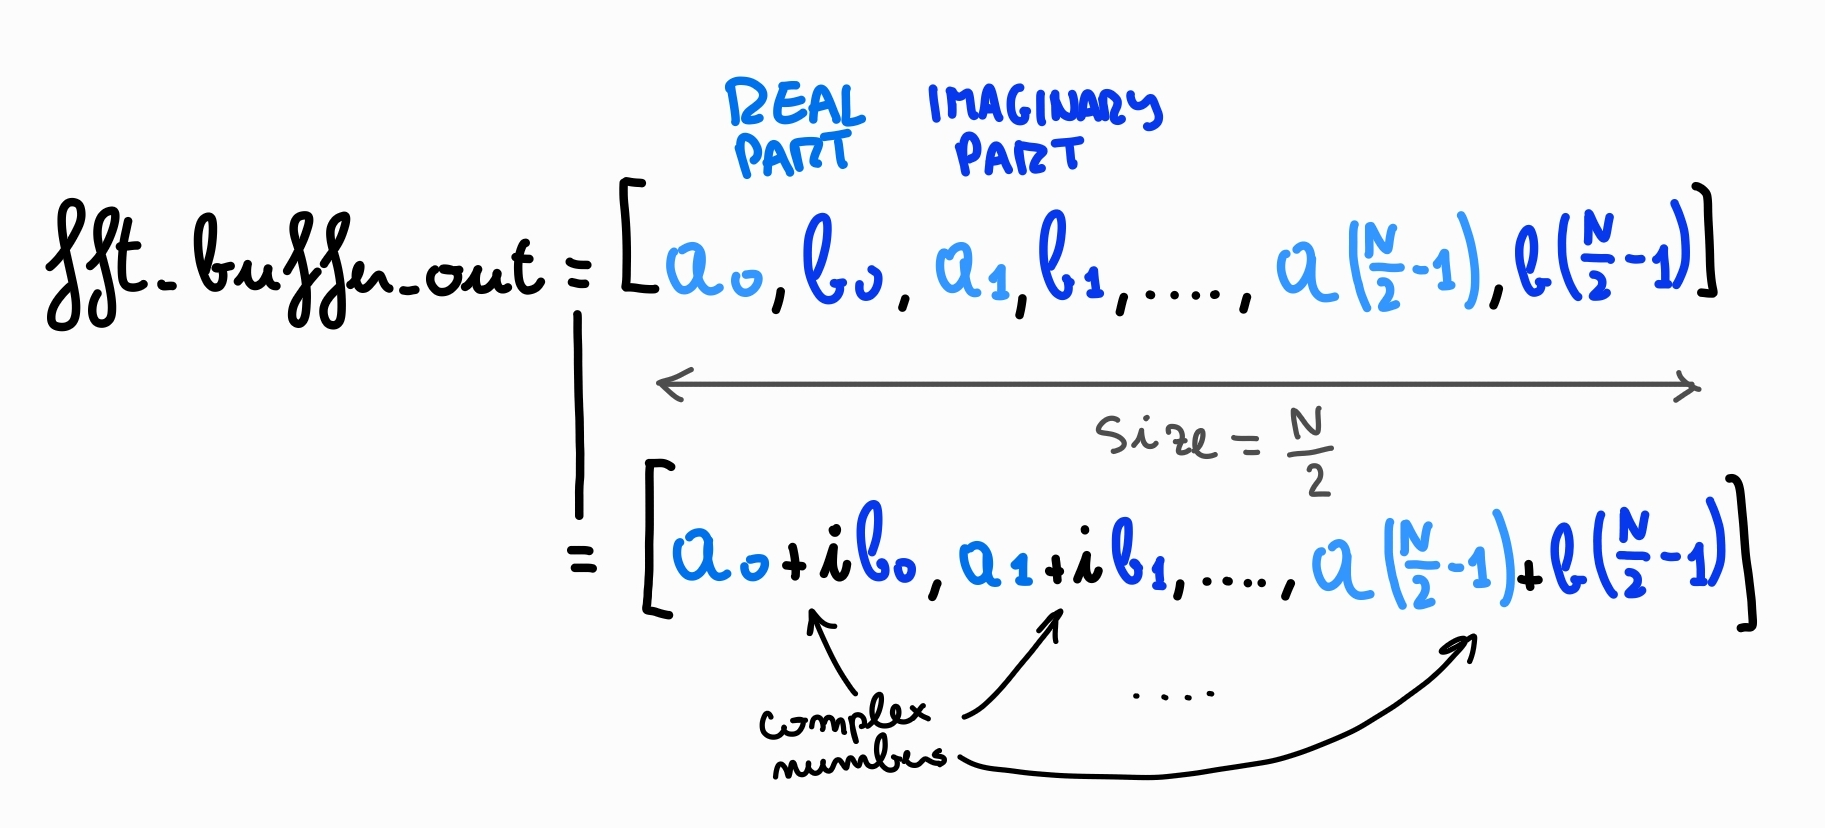 REAL IMAGINARY
PART PART
fft_buffer_out = [a₀, b₀, a₁, b₁, ...., a(N/2-1), b(N/2-1)]
Size = N/2
= [a₀+ib₀, a₁+ib₁, ...., a(N/2-1)+b(N/2-1)]
....
complex
numbers